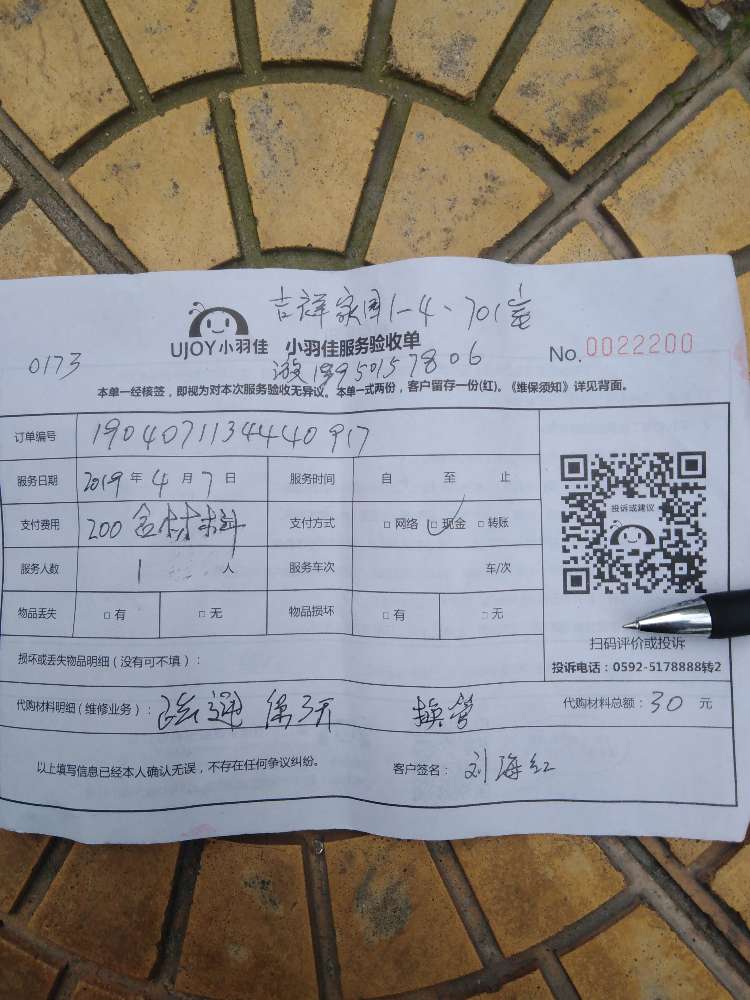 吉祥家园1-4、701室
UJOY小羽佳 小羽佳服务验收单
No.0022200
0173
游18950157806
本单一经核签，即视为对本次服务验收无异议。本单一式两份，客户留存一份(红)。《维保须知》详见背面。
订单编号 1904071134440917
服务日期 2019 年 4 月 7 日 服务时间 自 至 止
投诉或建议
支付费用 200含材料 支付方式 □ 网络 □ 现金 □ 转账
服务人数 1 人 服务车次 车/次
物品丢失 □ 有 □ 无 物品损坏 □ 有 □ 无
扫码评价或投诉
投诉电话：0592-5178888转2
损坏或丢失物品明细（没有可不填）：
代购材料明细（维修业务）：疏通 换管 代购材料总额：30 元
以上填写信息已经本人确认无误，不存在任何争议纠纷。 客户签名：刘海红